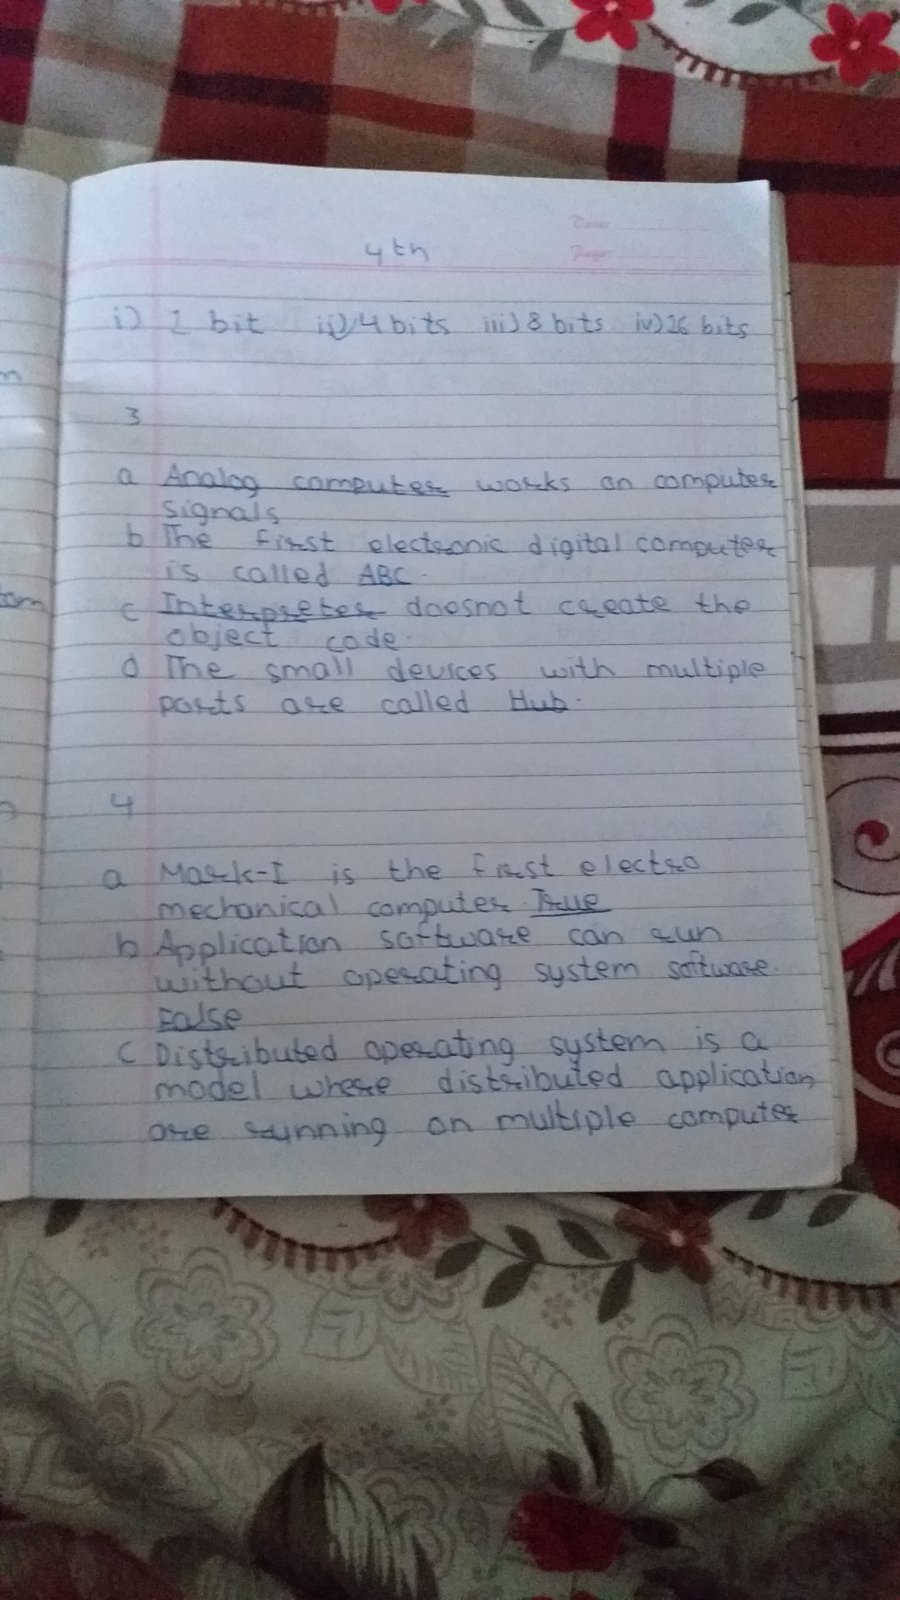 Date
Page
4th
i) 1 bit ii) 4 bits iii) 8 bits iv) 16 bits
3
a Analog computer works on computer
signals
b The first electronic digital computer
is called ABC.
c Interpreter doosnot create the
object code.
d The small devices with multiple
ports are called Hub.
4
a Mark-I is the first electro
mechanical computer. True
b Application software can run
without operating system software.
False
c Distributed operating system is a
model where distributed application
are running on multiple computer